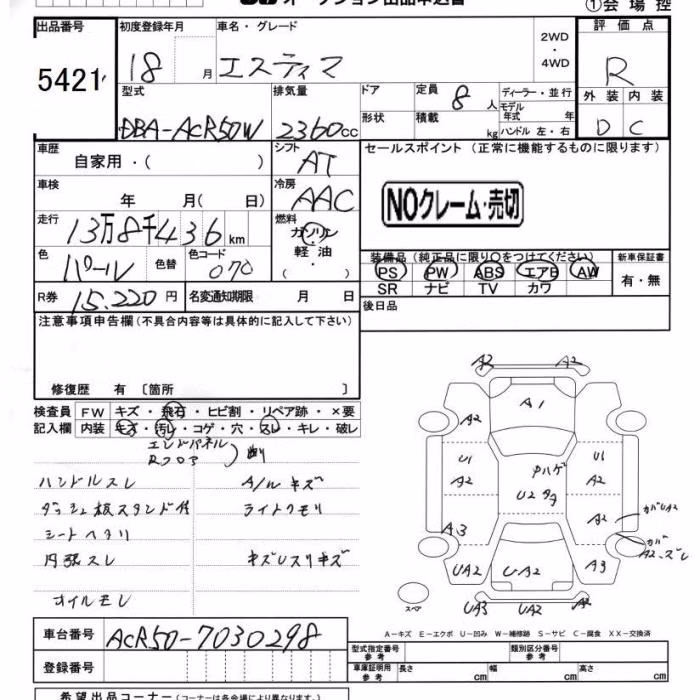 オークション出品申込書
①会場控
出品番号
5421
初度登録年月
18 月
車名・グレード
エスティマ
2WD
・
4WD
評価点
R
型式
DBA-ACR50W
排気量
2360cc
ドア
形状
定員 8 人
積載 kg
ディーラー・並行
モデル年式 年
ハンドル 左・右
外装 内装
D C
車歴
自家用・( )
シフト
AT
セールスポイント (正常に機能するものに限ります)
NOクレーム・売切
車検
年 月( 日)
冷房
AAC
走行
13万8千436 km
燃料
ガソリン
軽油
( ・ )
色
パール
色替
色コード
070
装備品 (純正品に限り〇をつけてください)
PS PW ABS エアB AW
SR ナビ TV カワ
新車保証書
有・無
R券 15.220円
名変通知期限 月 日
後日品
注意事項申告欄 (不具合内容等は具体的に記入して下さい)
修復歴 有 〔箇所
検査員記入欄
FW キズ・飛石・ヒビ割・リペア跡・×要
内装 キズ・汚レ・コゲ・穴・スレ・キレ・破レ
エンドパネル
Rフロア
ハンドルスレ
A/W キズ
ダッシュ板スタンド付
ライトクモリ
シートヘタリ
内張スレ
キズUスリキズ
オイルモレ
A2 A2
A1
A2
U1 U1
A2
U2
A2
カバUA2
A3
カバ
A2・ズレ
UA2 UA2 A3
スペア
UA3 UA2 A2
A-キズ E-エクボ U-凹み W-補修跡 S-サビ C-腐食 XX-交換済
車台番号
ACR50-7030298
登録番号
型式指定番号 参考
類別区分番号 参考
車庫証明用 参考
長さ cm 幅 cm 高さ cm
希望出品コーナー (コーナーは各会場により異なります)